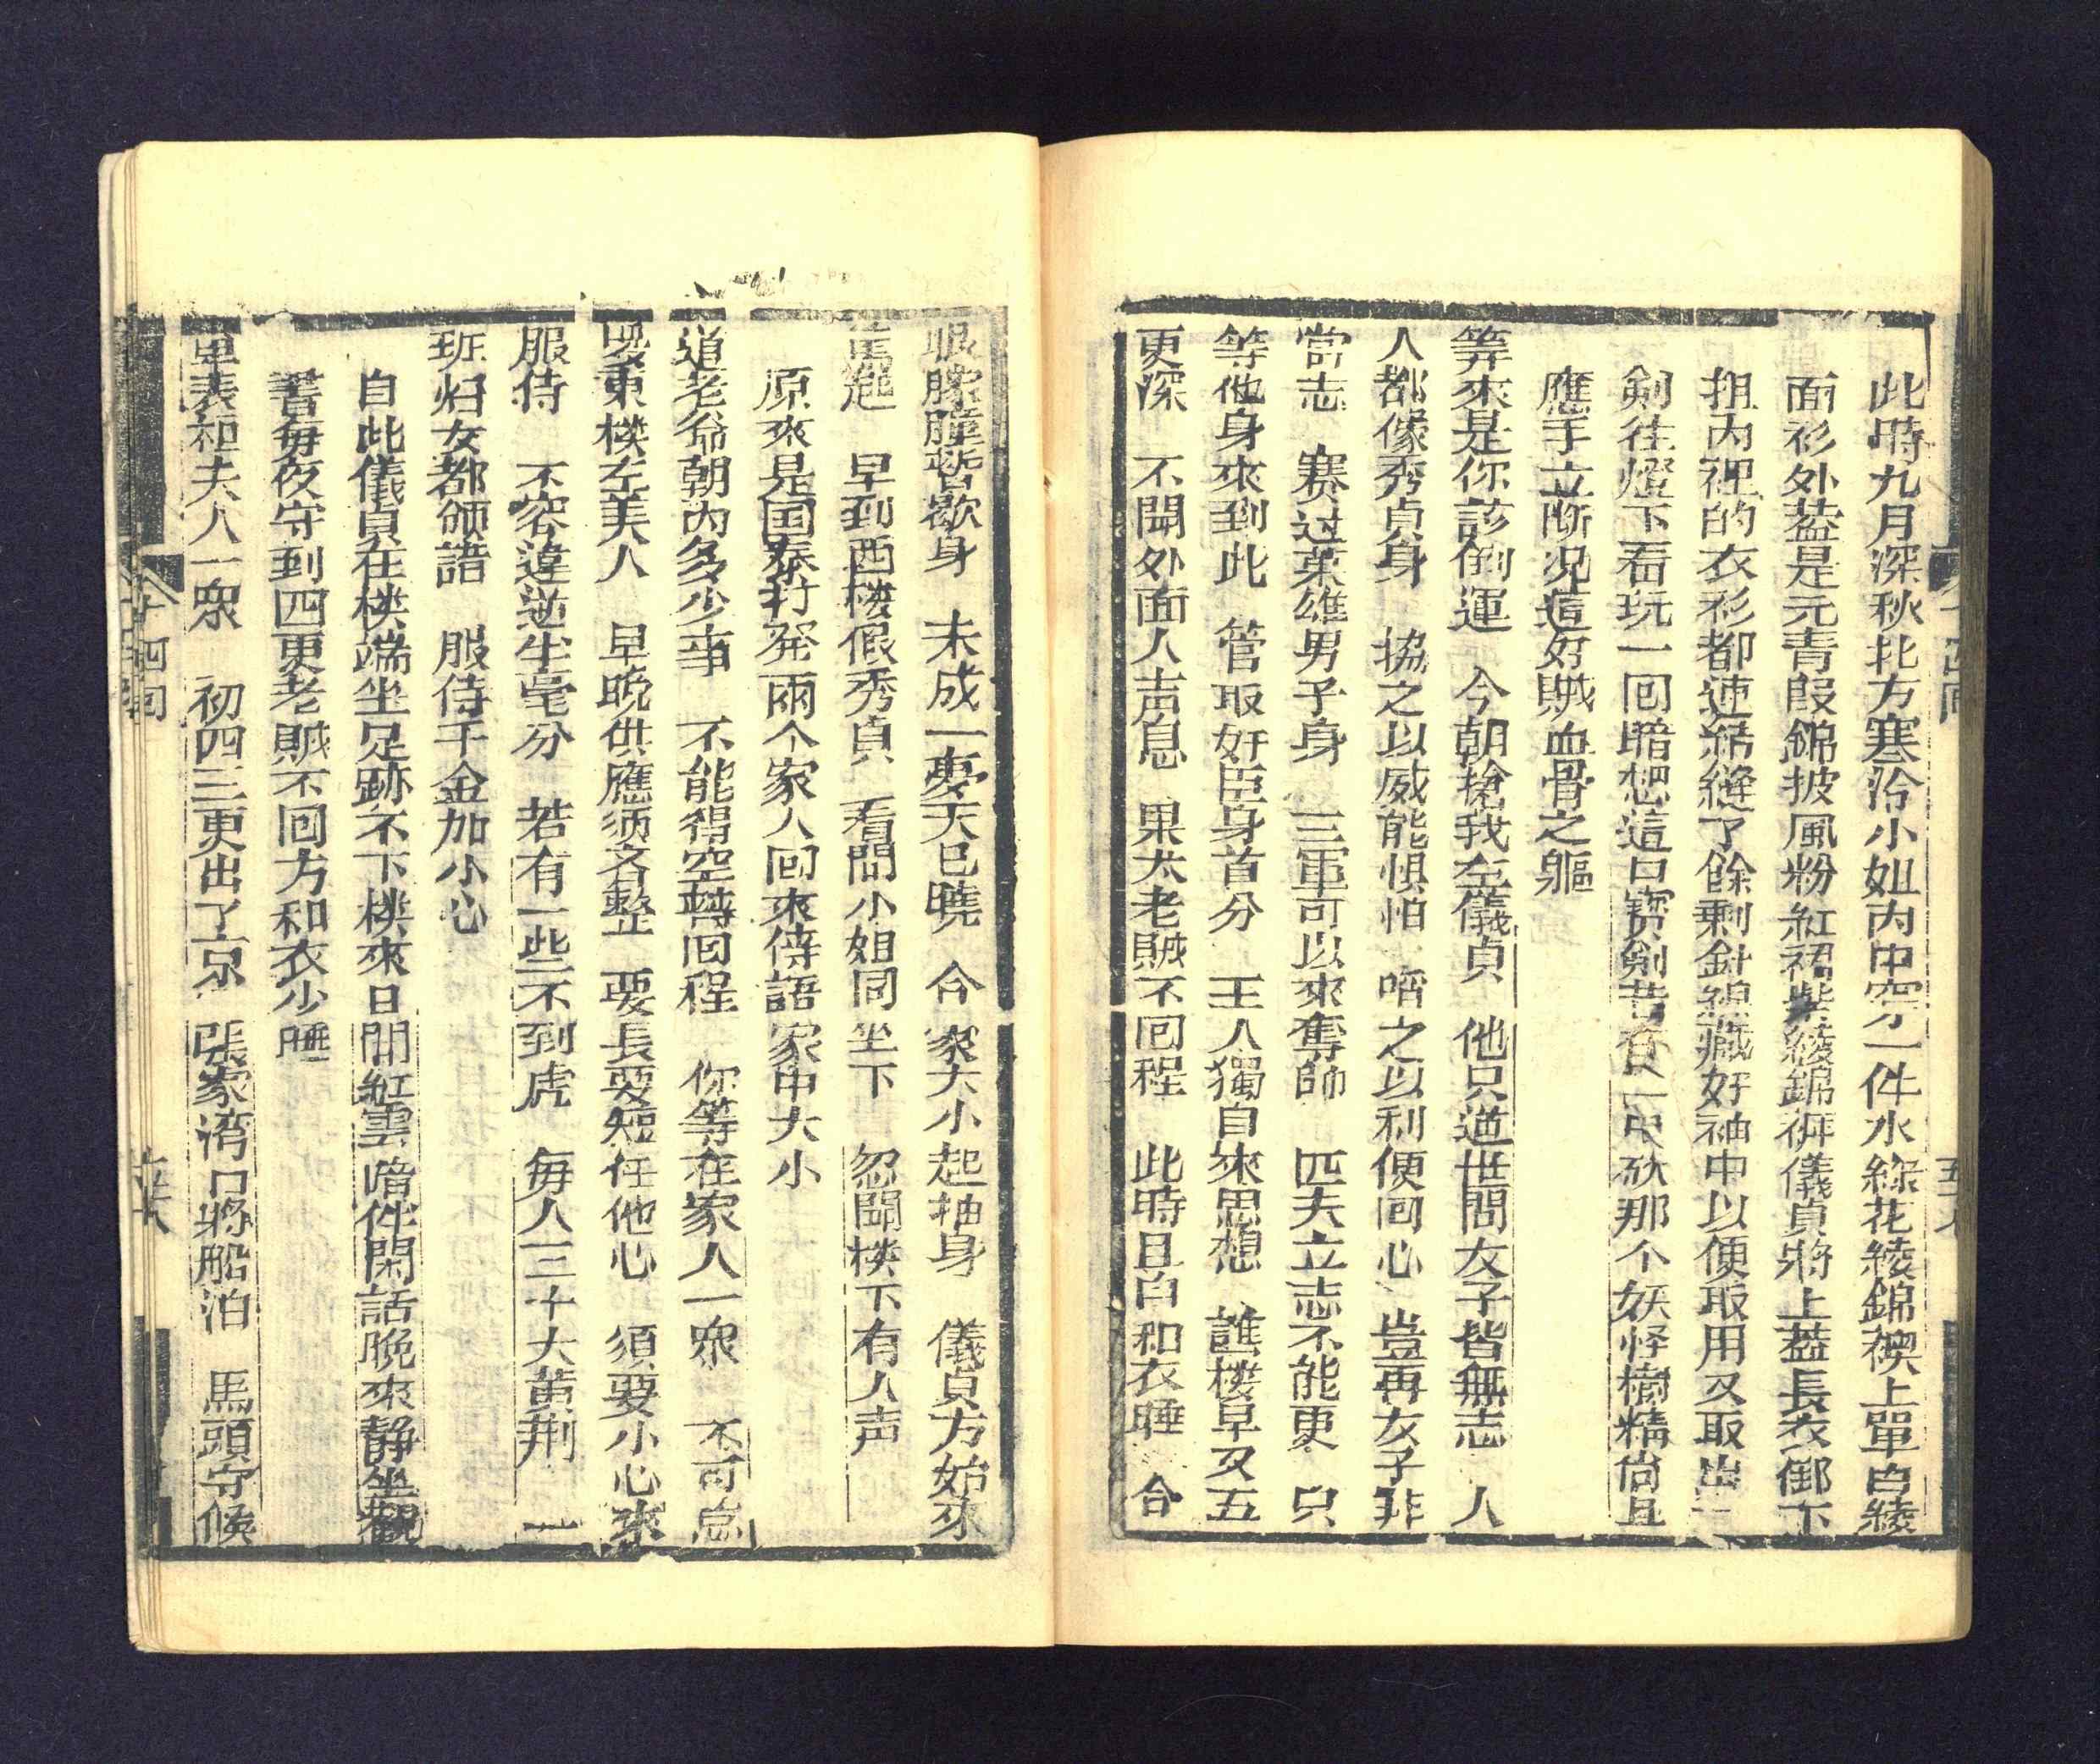 此時九月深秋北方寒冷小姐內中穿一件水綠花綾錦襖上單白綾
面衫外葢是元青叚錦披風粉紅裙紫綾錦褲儀貞將上葢長衣御下
抯內裡的衣衫都連結縫了餘剩針線藏好袖中以便取用又取出
劍往燈下看玩一囘暗想這口寳劍昔有砍那个妖怪樹精尙且
應手立断况這奸賊血骨之軀
筭來是你該倒運　今朝搶我左儀貞　他只道世間女子皆無志　人
人都像秀貞身　協之以威能惧怕　啗之以利便囘心　豈再女子非
尝志　賽过英雄男子身　三軍可以來奪帥　匹夫立志不能更　只
等他身來到此　管取奸臣身首分　王人獨自來思想　譙楼早又五
更深　不聞外面人声息　果太老賊不囘程　此時且自和衣睡　合
眼朦朣暫歇身　未成一夢天已曉　合家大小起抽身　儀貞方始來
　早到西楼假秀貞　看問小姐同坐下　忽聞楼下有人声
原來是国泰打発兩个家人囘來傳語家中大小
道老爺朝內多少事　不能得空轉囘程　你等在家人一眾　不可怠
慢東楼左美人　早晚供應須齐整　要長要短任他心　須要小心來
服侍　不容違逆半毫分　若有一些不到虎　每人三十大黃荊　一
班妇女都領語　服侍千金加小心
自此儀貞在楼端坐足跡不下楼來日間紅雲暗伴閑話晚來静坐觀
書每夜守到四更老賊不囘方和衣少睡
單表和夫人一眾　初四三更出了京　張家湾口將船泊　馬頭守候
十四囘